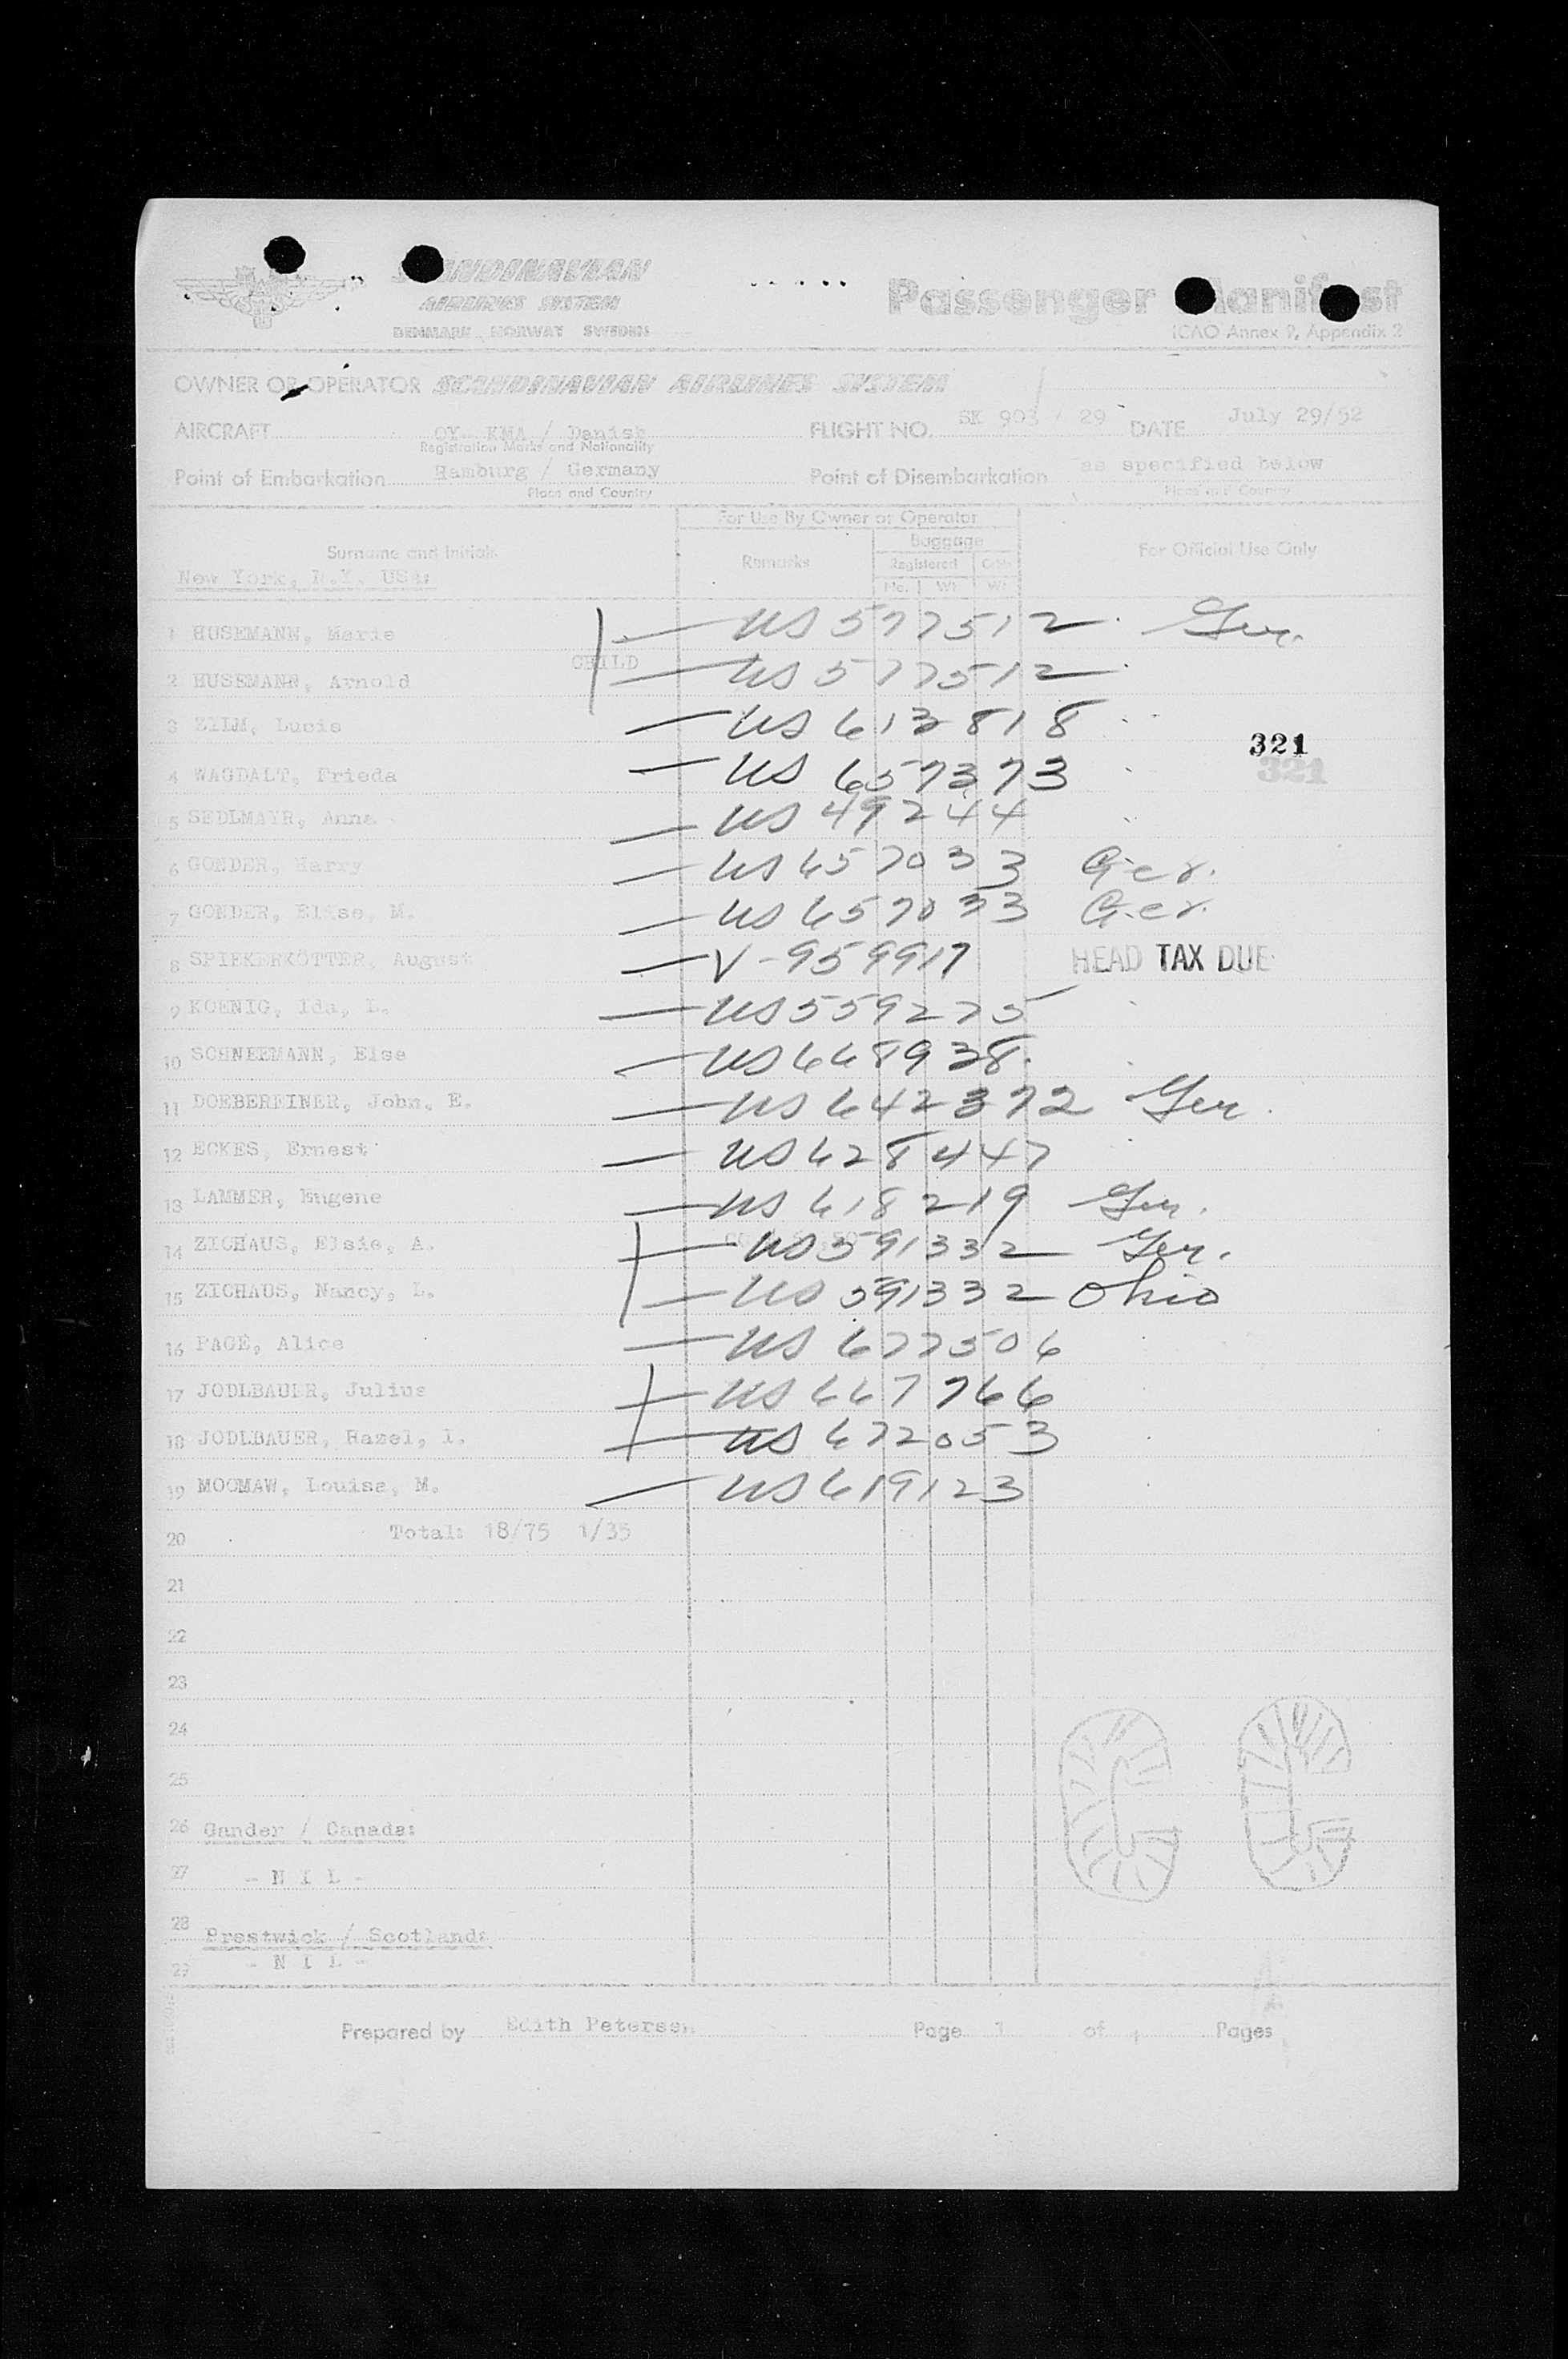 SCANDINAVIAN
AIRLINES SYSTEM
DENMARK NORWAY SWEDEN
Passenger Manifest
ICAO Annex 9, Appendix 2
OWNER OR OPERATOR SCANDINAVIAN AIRLINES SYSTEM
AIRCRAFT OY-KMA / Danish FLIGHT NO. SK 903 / 29 DATE July 29/52
Registration Marks and Nationality
Point of Embarkation Hamburg / Germany Point of Disembarkation as specified below
Place and Country Place and Country
For Use By Owner or Operator
Surname and Initials Remarks Baggage For Official Use Only
Registered Cabin
No. Wt Wt
New York, N.Y. USA:
1 HUSEMANN, Marie US 577512 Ger.
2 HUSEMANN, Arnold CHILD US 577512
3 ZILM, Lucie US 613818
321
321
4 WAGDALT, Frieda US 657373
5 SEDLMAYR, Anna US 49244
6 GONDER, Harry US 657033 Ger.
7 GONDER, Elise, M. US 657033 Ger.
8 SPIEKERKÖTTER, August V-959917 HEAD TAX DUE
9 KOENIG, Ida, L. US 559275
10 SCHNEEMANN, Else US 668938
11 DOEBEREINER, John, E. US 642372 Ger.
12 ECKES, Ernest US 628447
13 LAMMER, Eugene US 618219 Ger.
14 ZICHAUS, Elsie, A. US 591332 Ger.
15 ZICHAUS, Nancy, L. US 591332 Ohio
16 PAGE, Alice US 677506
17 JODLBAUER, Julius US 667766
18 JODLBAUER, Hazel, I. US 672053
19 MOOMAW, Louise, M. US 619123
20 Total: 18/75 1/35
21
22
23
24
25
26 Gander / Canada:
27 - N I L -
28 Prestwick / Scotland:
29 - N I L -
Prepared by Edith Petersen Page 1 of 1 Pages